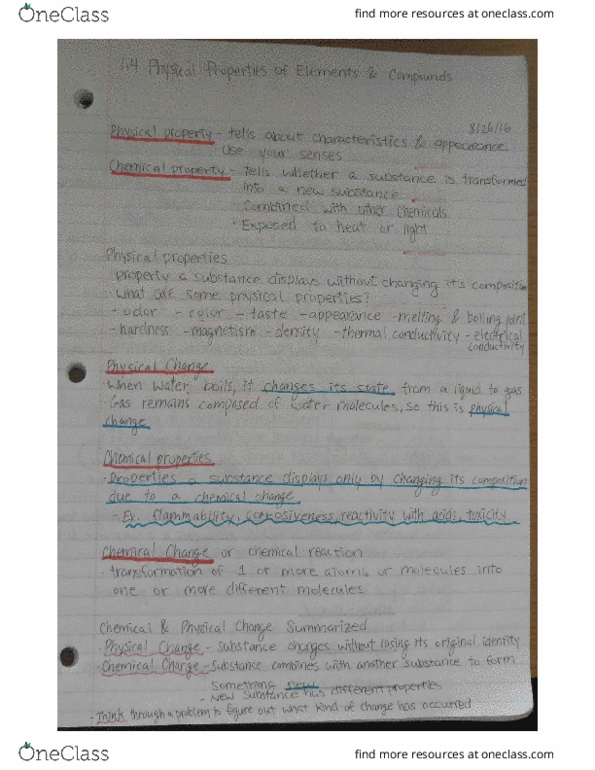 OneClass
find more resources at oneclass.com
1.4 Physical Properties of Elements & Compounds
8/26/16
Physical property - tells about characteristics & appearance
Use your senses
Chemical property - tells whether a substance is transformed
into a new substance
Combined with other chemicals
· Exposed to heat or light
Physical properties
property a substance displays without changing it's composition
· What are some physical properties?
- odor - color - taste - appearance - melting & boiling point
- hardness - magnetism - density - thermal conductivity - electrical
conductivity
Physical Change
· When water boils, it changes its state from a liquid to gas
· Gas remains composed of water molecules, so this is physical
change
Chemical properties
· Properties a substance displays only by changing its composition
due to a chemical change
- Ex. flammability, corrosiveness, reactivity with acids, toxicity
Chemical Change or chemical reaction
· transformation of 1 or more atoms or molecules into
one or more different molecules
Chemical & Physical Change Summarized
· Physical Change - substance changes without losing its original identity
· Chemical Change - substance combines with another substance to form
something new
- New substance has different properties
· Think through a problem to figure out what kind of change has occurred
OneClass
find more resources at oneclass.com